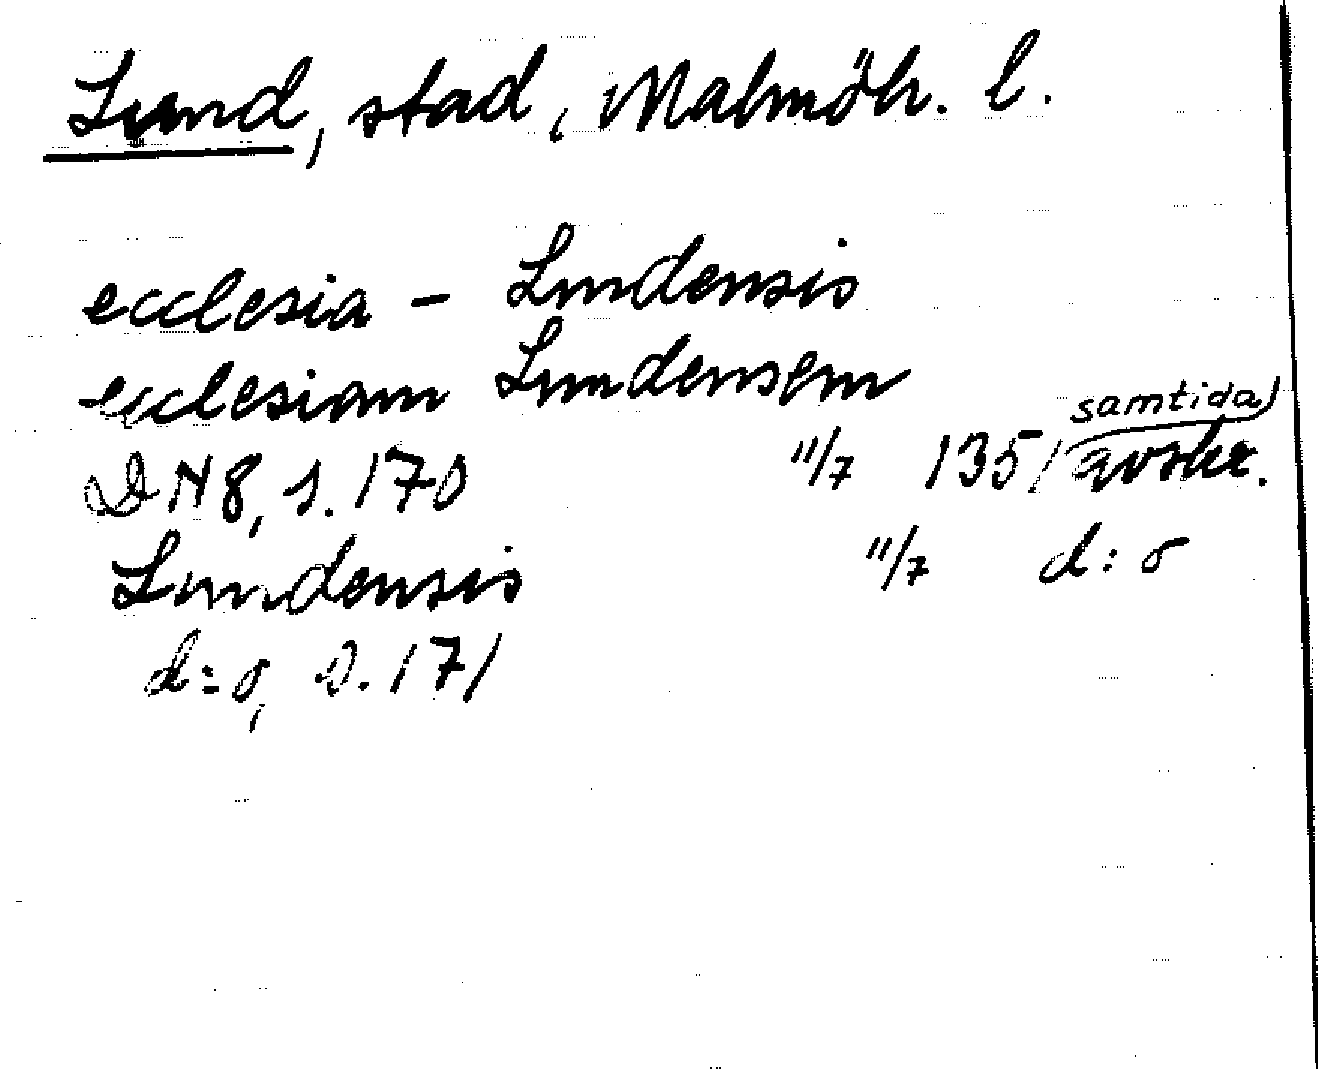 Lund, stad, Malmöh. l.
ecclesia – Lundensis
ecclesiam Lundensem
samtida
DN 8, s. 170 11/7 1351 avskr.
Lundensis 11/7 d:o
d:o, s. 171